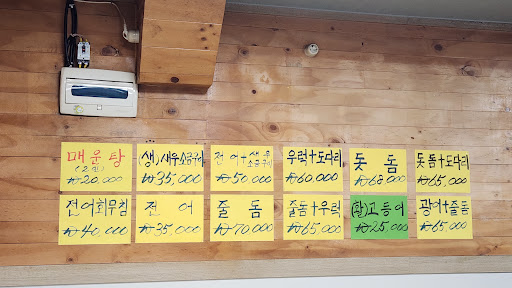 매운탕
(2인)
₩20,000
(생)새우소금구이
₩35,000
전어+생새우
소금구이
₩50,000
우럭+도다리
₩60,000
돗돔
₩68,000
돗돔+도다리
₩65,000
전어회무침
₩40,000
전어
₩35,000
줄돔
₩70,000
줄돔+우럭
₩65,000
(활)고등어
₩25,000
광어+줄돔
₩65,000